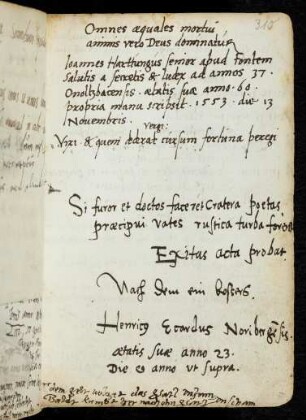 315
Omnes æquales mortui
animis vero Deus dominatur
Ioannes Harttungus senior apud Fontem
Salutis a secretis & Iudex ad annos 37.
Onoltzbacensis. ætatis suæ anno. 60.
propria manu scripsit. 1553. die 13
Novembris.
Vixi & quem dederat cursum fortuna peregi
Si furor et doctos faceret Cratera poetas
præcipui vates rustica turba foret
Exitus acta probat.
Nach dem ein bessers.
Henricus Ecardus Noribergensis
ætatis suæ anno 23.
Die & anno ut supra.